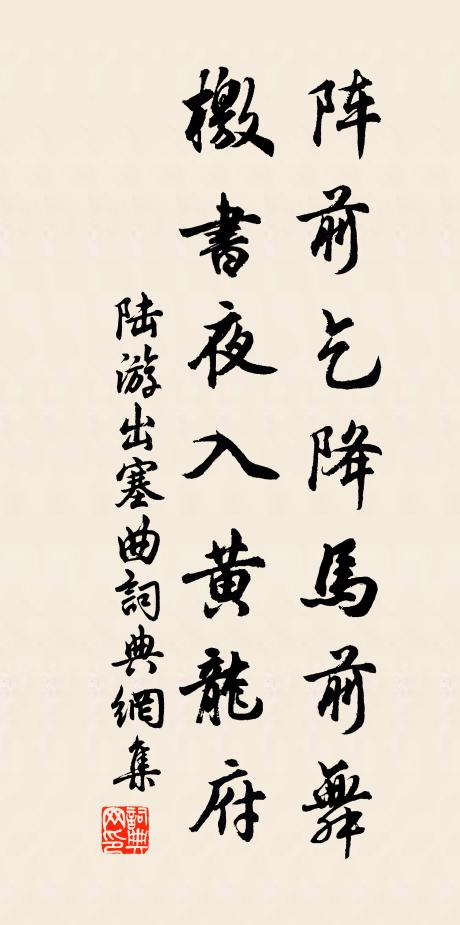 阵前乞降馬前舞
檄書夜入黄龍府
陆游出塞曲詞典網集
詞典网印